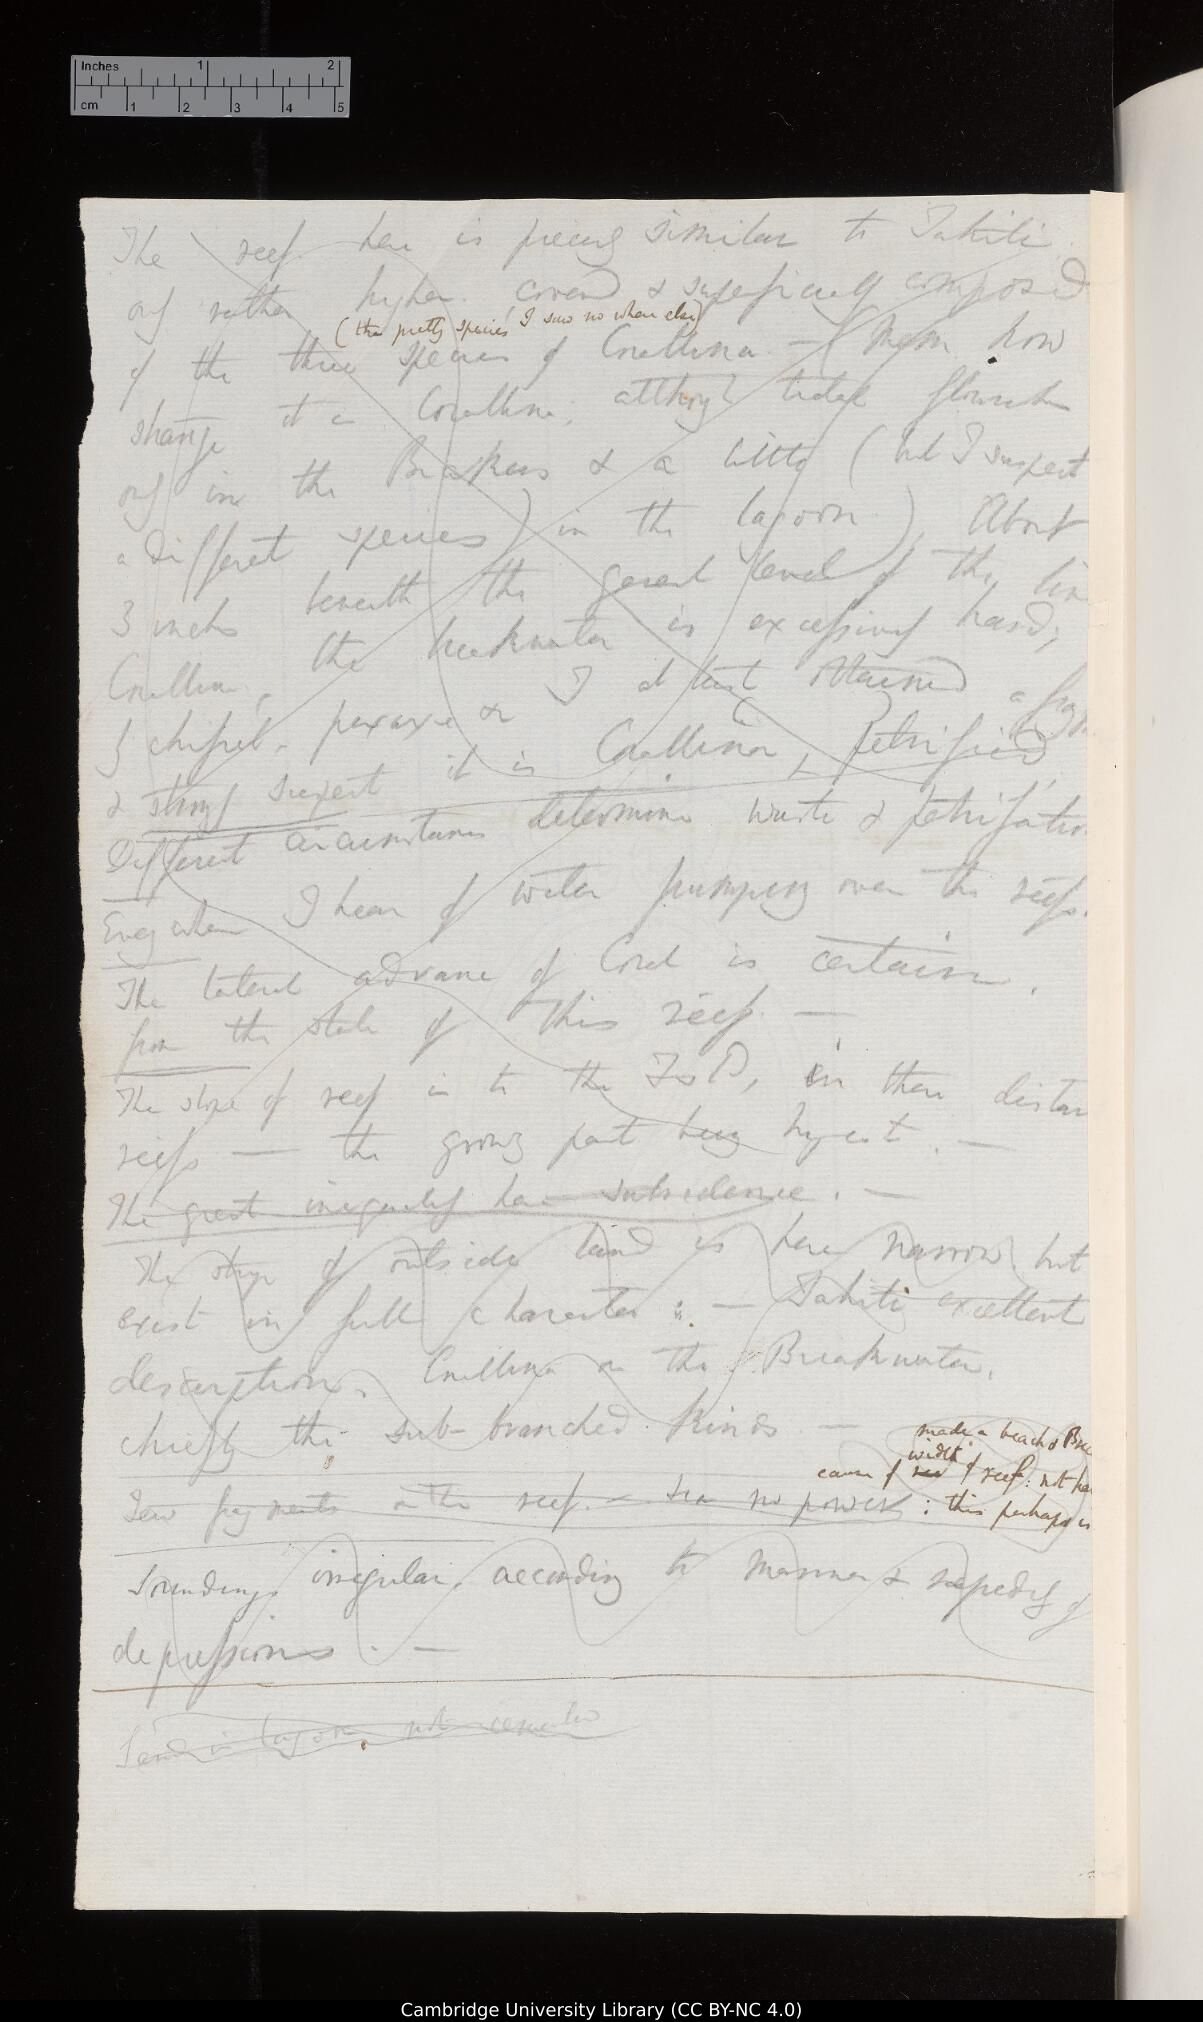 Inches 1 2
cm 1 2 3 4 5
The reef here is precisely similar to Tahiti
only rather higher. covered & superficially composed
(the pretty species I saw no where else)
of the three species of Corallina — (Mem. how
strange it is Corallina, although tidal flourish
only in the Breakers & a little (but I suspect
a different species) in the lagoon). About
3 inches beneath the general level of the
Corallina, the breakwater is excessively hard;
chissel pexaxe & I at last obtained a
& strongly suspect it is Corallina, petrified
Different circumstances determine waste & petrifaction
Every where I hear of water pumping over the reefs.
The lateral advance of Coral is certain
from the state of this reef. —
The slope of reef is to the Is. D, in then distan
reefs — the growing part being highest. —
The great inequality here subsidence. —
The strip of outside land is here narrow but
exist in full character: — Tahiti excellent
description. Corallina on the Breakwater.
chiefly the sub-branched kinds —
made a beach & Bre
width
cause of of reef: not ha
Few fragments on the reef. — Sea no power: this perhaps is
Soundings irregular, according to manner & rapidity of
depressions. —
Sand in lagoon not
Cambridge University Library (CC BY-NC 4.0)